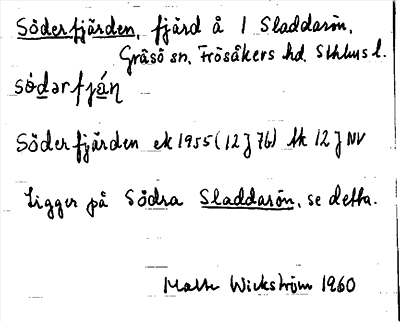 Söderfjärden, fjärd å 1 Sladdarön,
Gräsö sn, Frösåkers hd, Sthlms l.
sö̀dərfjáṇ
Söderfjärden ek 1955 (12J 76) tk 12J NV
Ligger på Södra Sladdarön, se detta.
Mats Wickström 1960